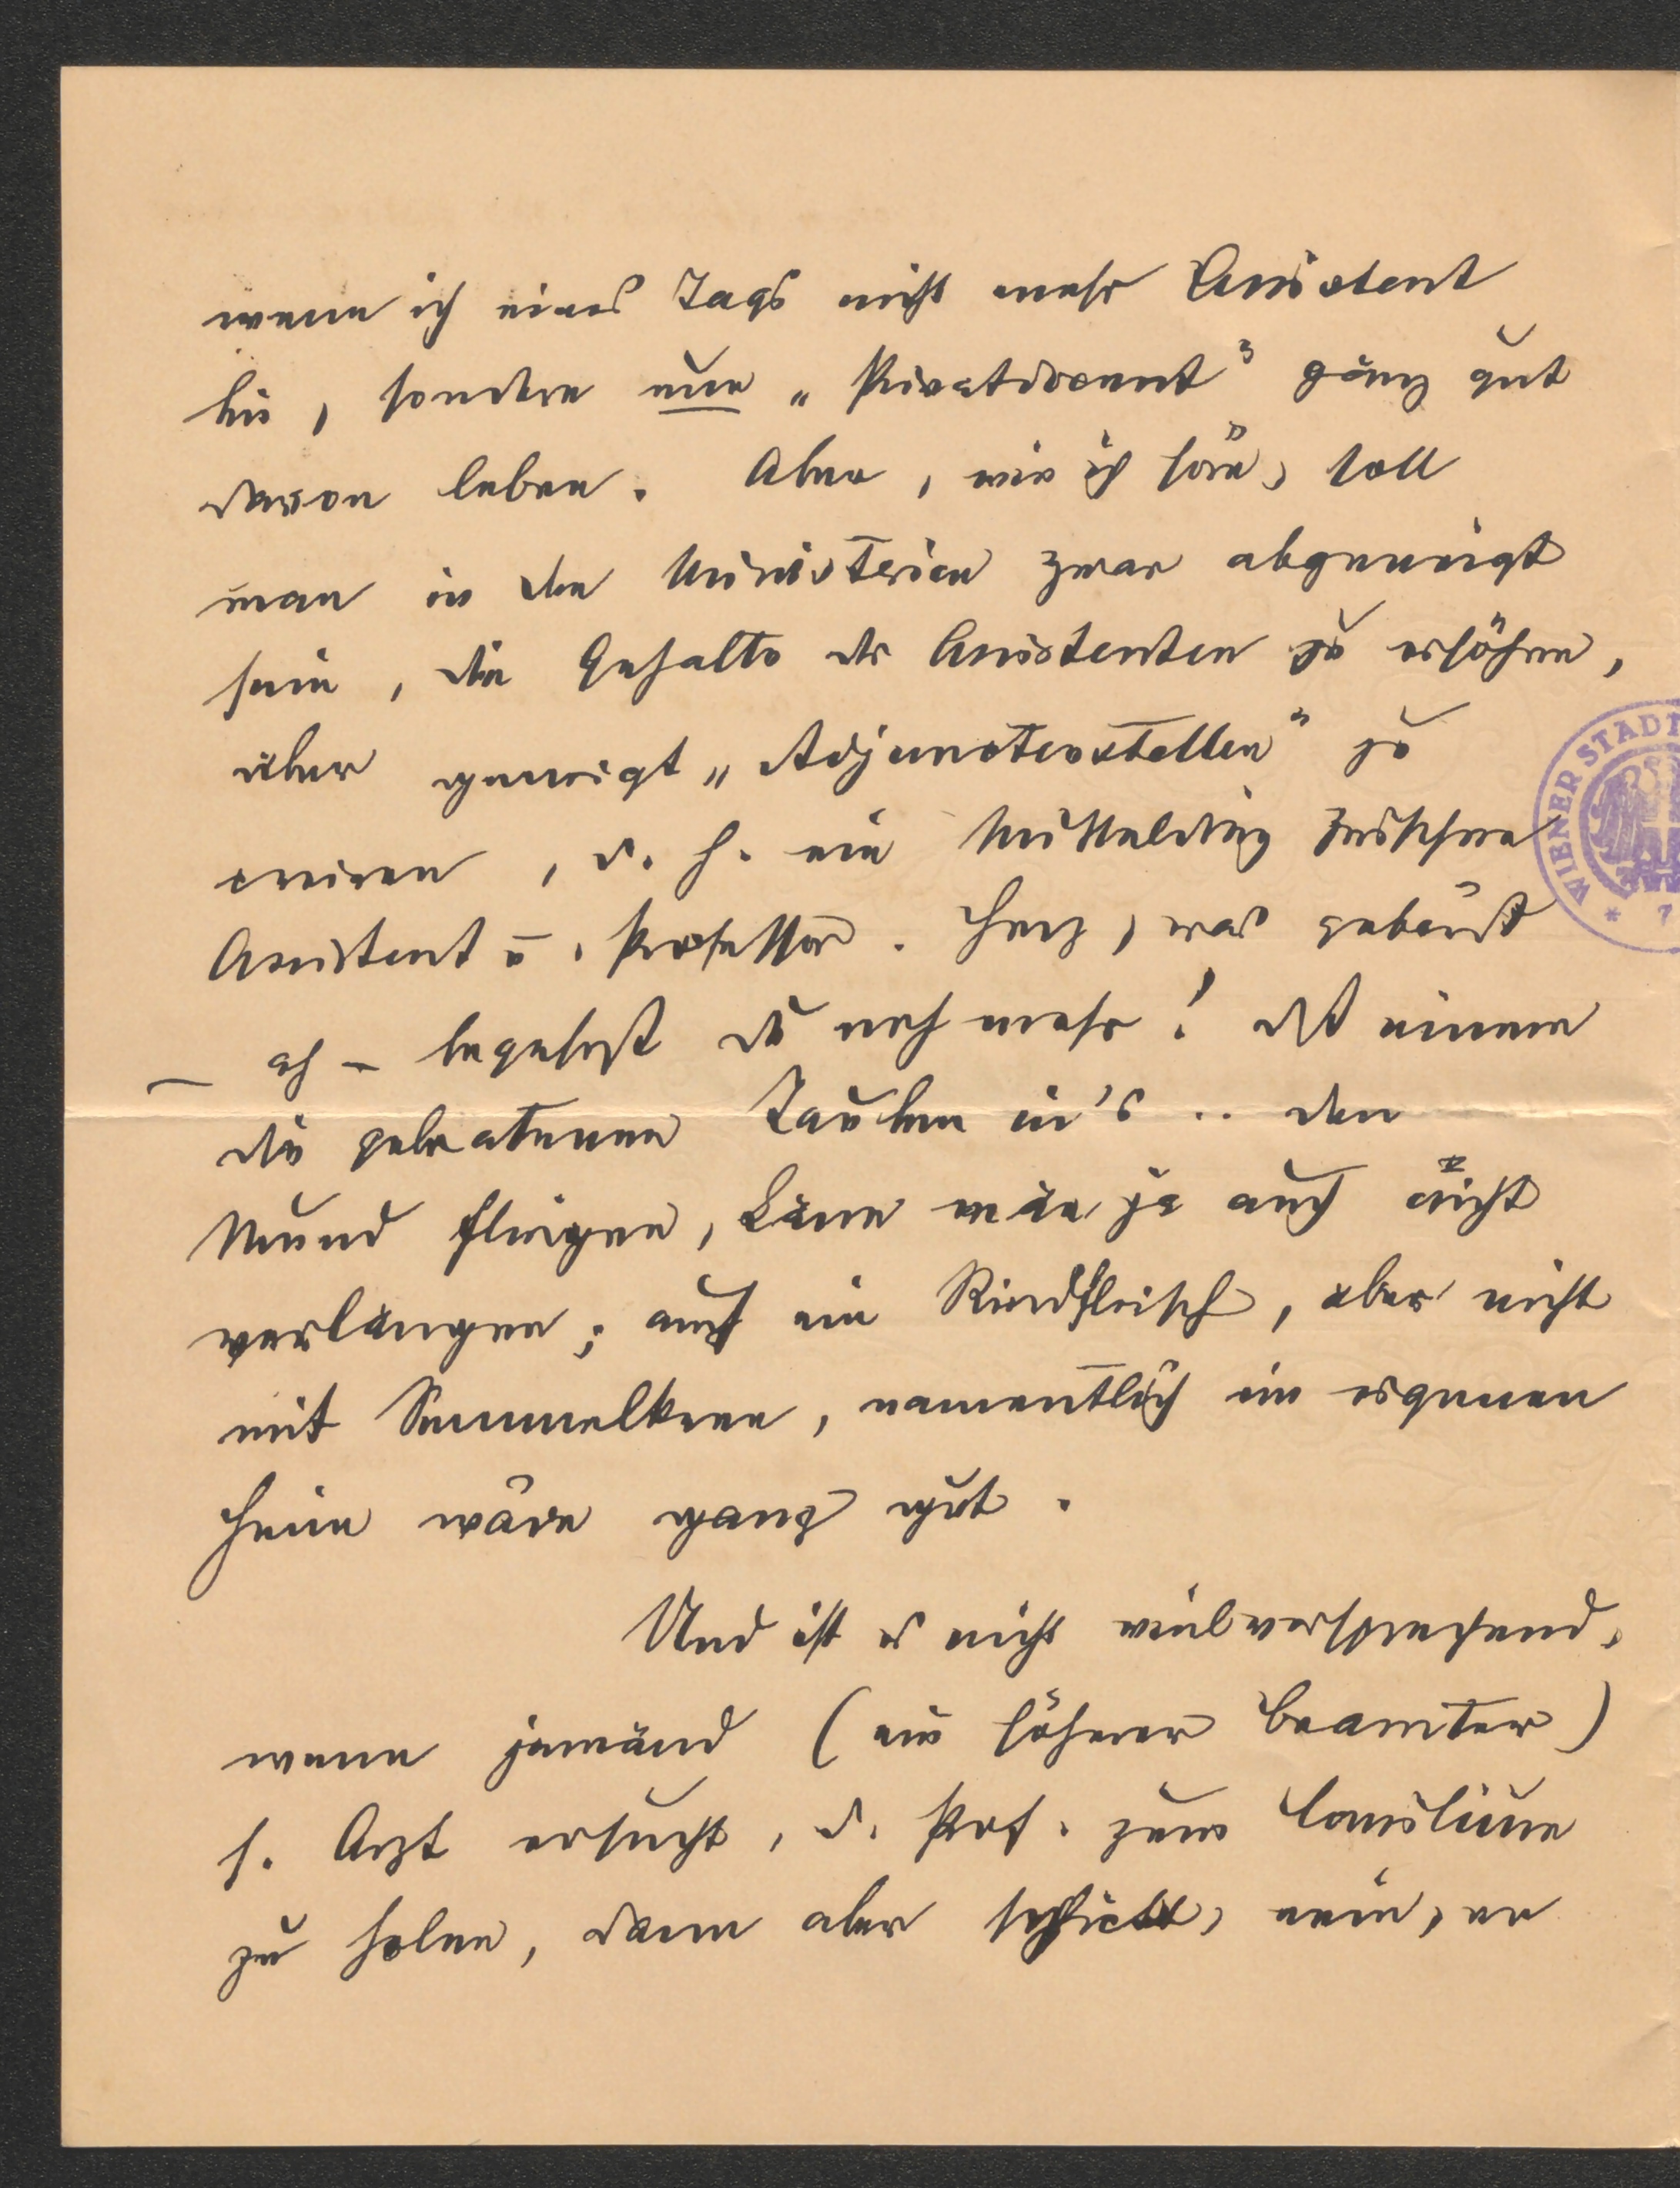 wenn ich eines Tags nicht mehr Assistent
bin, sondern nur „Privatdocent" ganz gut
davon leben. Aber, wie ich höre, soll
man in den Ministerien zwar abgeneigt
sein, die Gehalte der Assistenten zu erhöhen,
aber geneigt „Adjunctenstellen" zu
creiren, d. h. ein Mittelding zwischen
Assistent u. Professor. Herz, was gebeust
– ah – begehrst du noch mehr! Daß einem
die gebratenen Tauben in's .. den
Mund fliegen, kann man ja auch nicht
verlangen; auch ein Rindfleisch, aber nicht
mit Semmelkren, namentlich im eigenen
Heim wäre ganz gut.
Und ist es nicht vielversprechend,
wenn jemand (ein höherer Beamter)
s. Arzt ersucht, d. Prof. zum Consilium
zu holen, dann aber schickt, nein, er
WIENER STADT
* 7